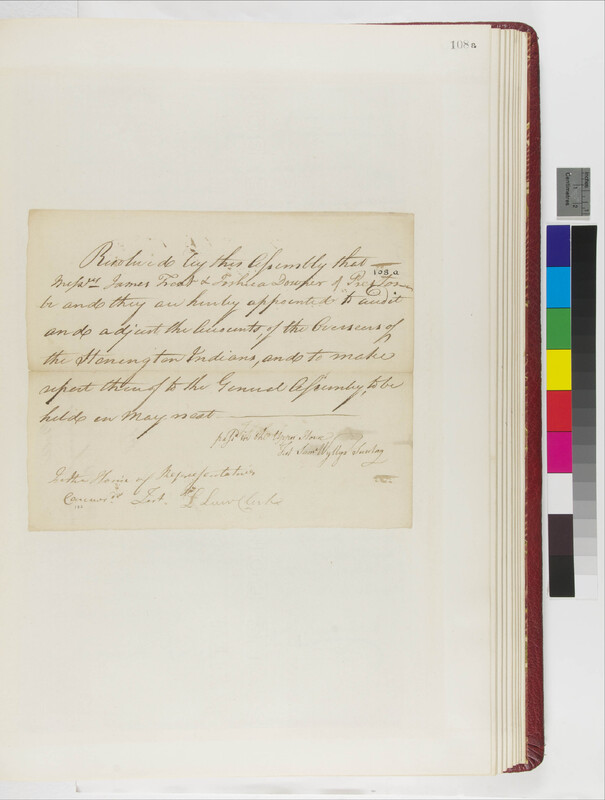 108a
Resolved by this Assembly that
108,a
Messrs James Treat & Joshua Downer of Preston
be and they are hereby appointed to audit
and adjust the Accounts, of the Overseers of
the Stonington Indians, and to make
report thereof to the General Assembly, to be
held in May next
passd in the Upper House
Test Saml Wyllys Secretry
In the House of Representatives
Concurrd Test. Law Clerk